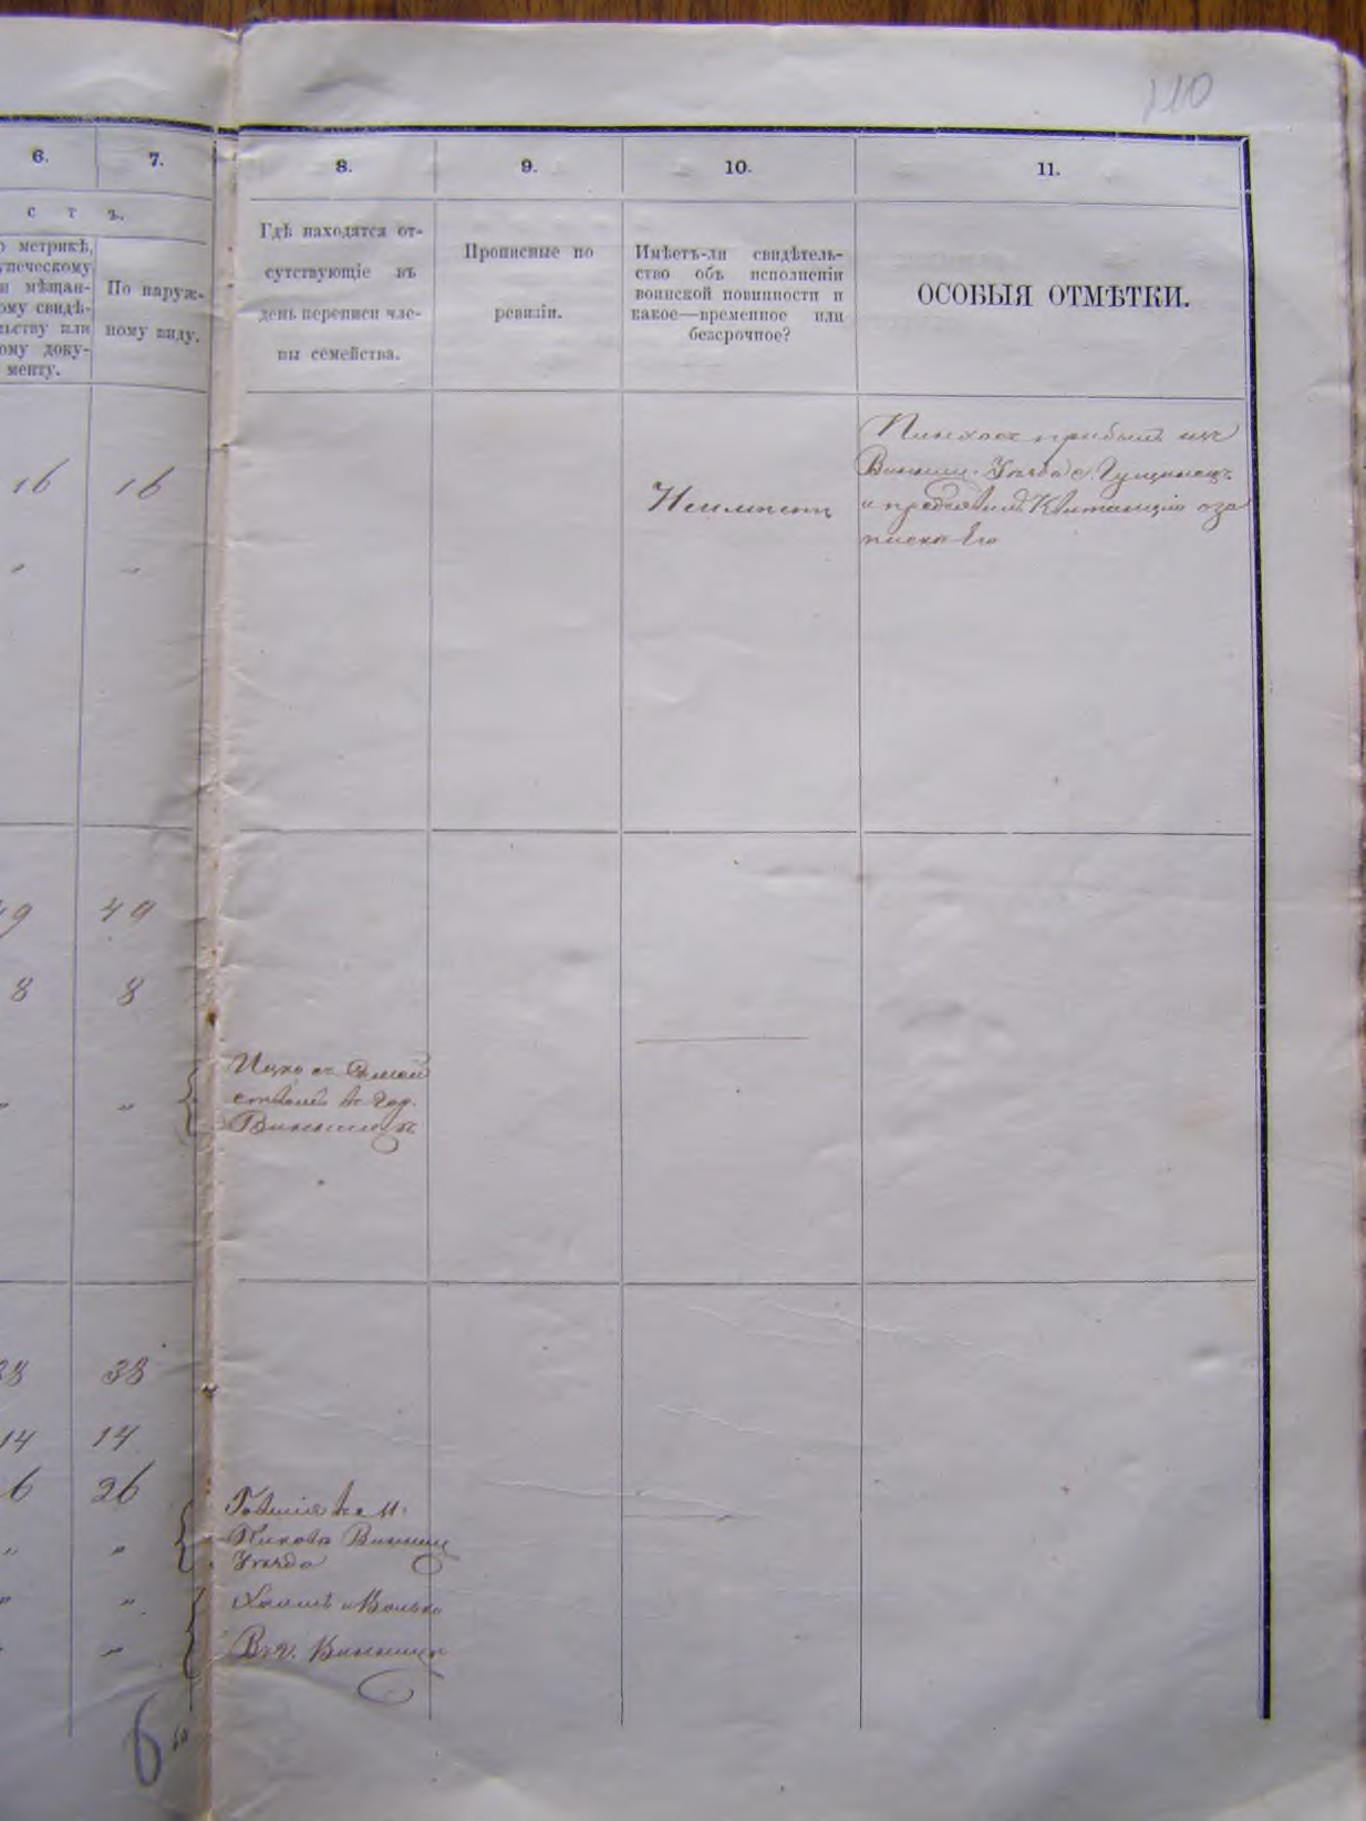 110
6.
7.
8.
9.
10.
11.
с т ъ.
о метрикѣ,
упеческому
и мѣщан-
ому свидѣ-
льству или
ому доку-
менту.
По наруж-
ному виду.
Гдѣ находятся от-
сутствующіе въ
день переписи чле-
ны семейства.
Прописные по
ревизіи.
Имѣетъ-ли свидѣтель-
ство объ исполненіи
воинской повинности и
какое—временное или
безсрочное?
ОСОБЫЯ ОТМѢТКИ.
16 16
Неимѣетъ
Пинхасъ прибылъ изъ
Винниц. Уѣзда с. Гущинецъ
и предъявилъ Квитанцію о за
пискѣ Его
„ „
49 49
8 8
„ „
Ицко съ Семей
ствомъ въ гор.
Винницѣ
38 38
14 14
6 26
„ „
въ м.
Пиковѣ Винниц
Уѣзда
„ „
и Волько
„ „
Въ г. Винницѣ
6